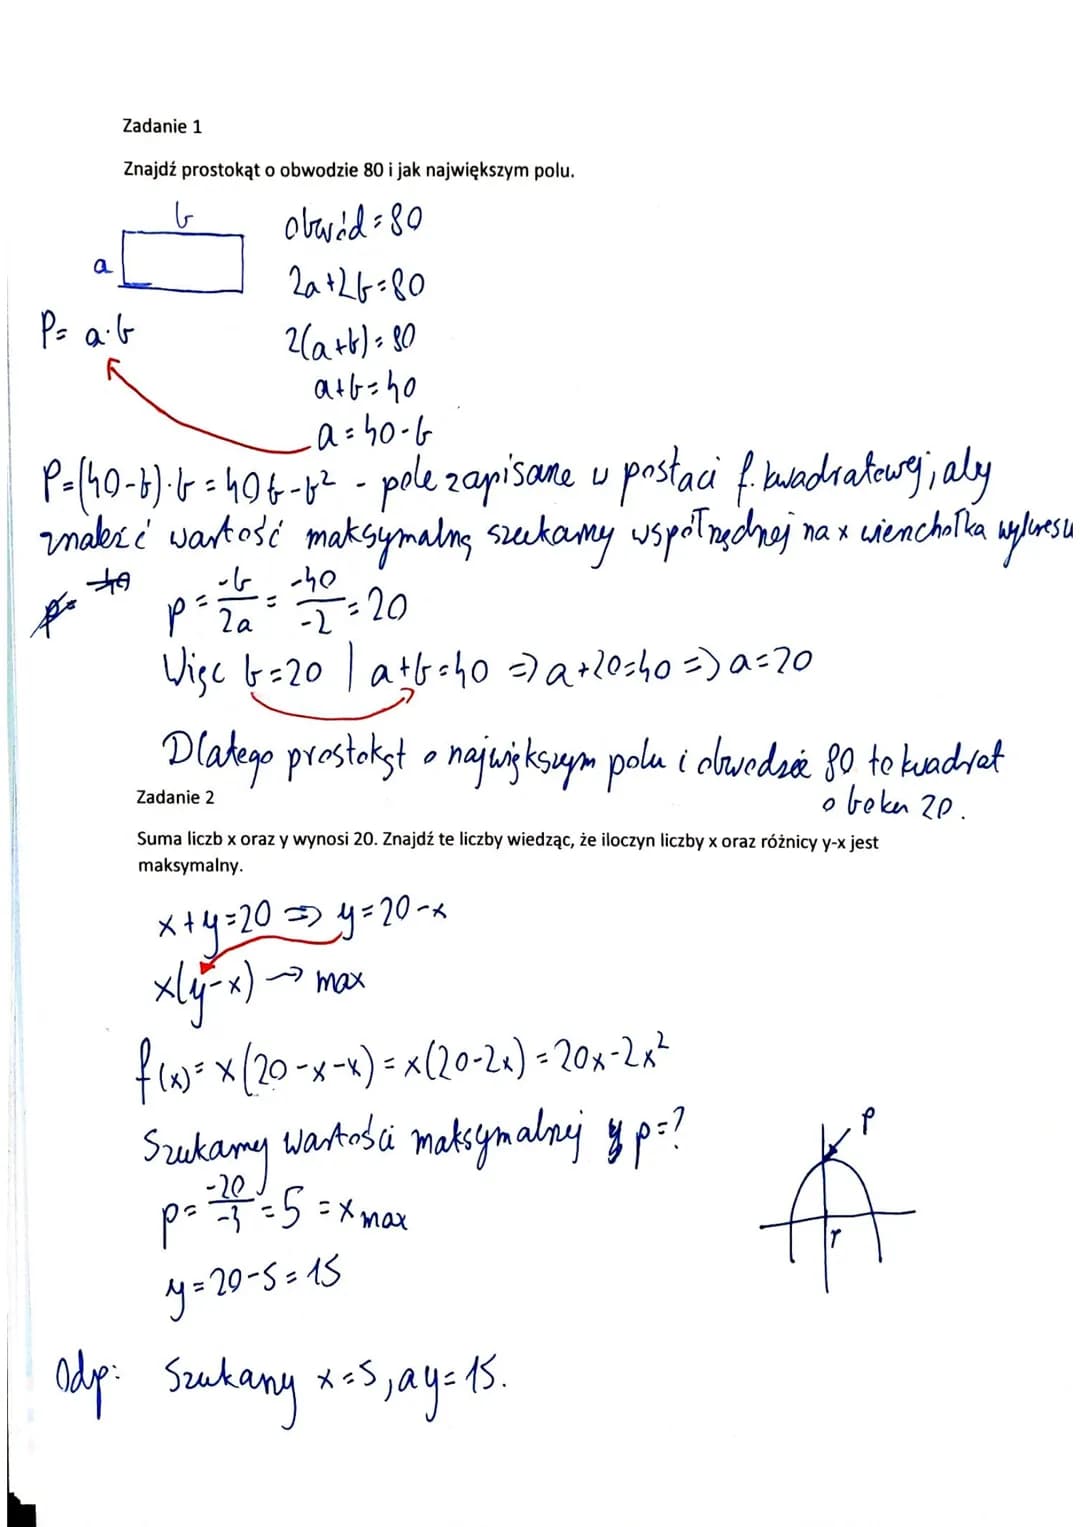 Zadanie 1
Znajdź prostokąt o obwodzie 80 i jak największym polu.
b
a
obwód = 80
2a+2b=80
P= a·b
2(a+b)=80
a+b=40
a=40-b
P=(40-b)·b=40b-b² - pole zapisane w postaci f. kwadratowej, aby
znaleźć wartość maksymalną szukamy współrzędnej na x wierzchołka wykresu
p = -b/2a = -40/-2 = 20
Więc b=20 | a+b=40 => a+20=40 => a=20
Dlatego prostokąt o największym polu i obwodzie 80 to kwadrat
o boku 20.
Zadanie 2
Suma liczb x oraz y wynosi 20. Znajdź te liczby wiedząc, że iloczyn liczby x oraz różnicy y-x jest
maksymalny.
x+y=20 => y=20-x
x(y-x) → max
f(x)= x(20-x-x) = x(20-2x) = 20x-2x²
Szukamy wartości maksymalnej p=?
p
p= -20/ = 5 = x max
r
y=20-5=15
Odp: Szukany x=5, a y=15.